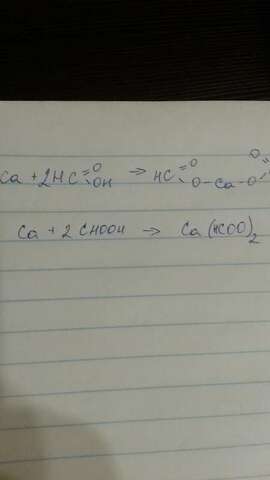 Ca + 2HC=O-OH → HC=O-O-Ca-O O
Ca + 2 CHOOH → Ca(HCOO)2